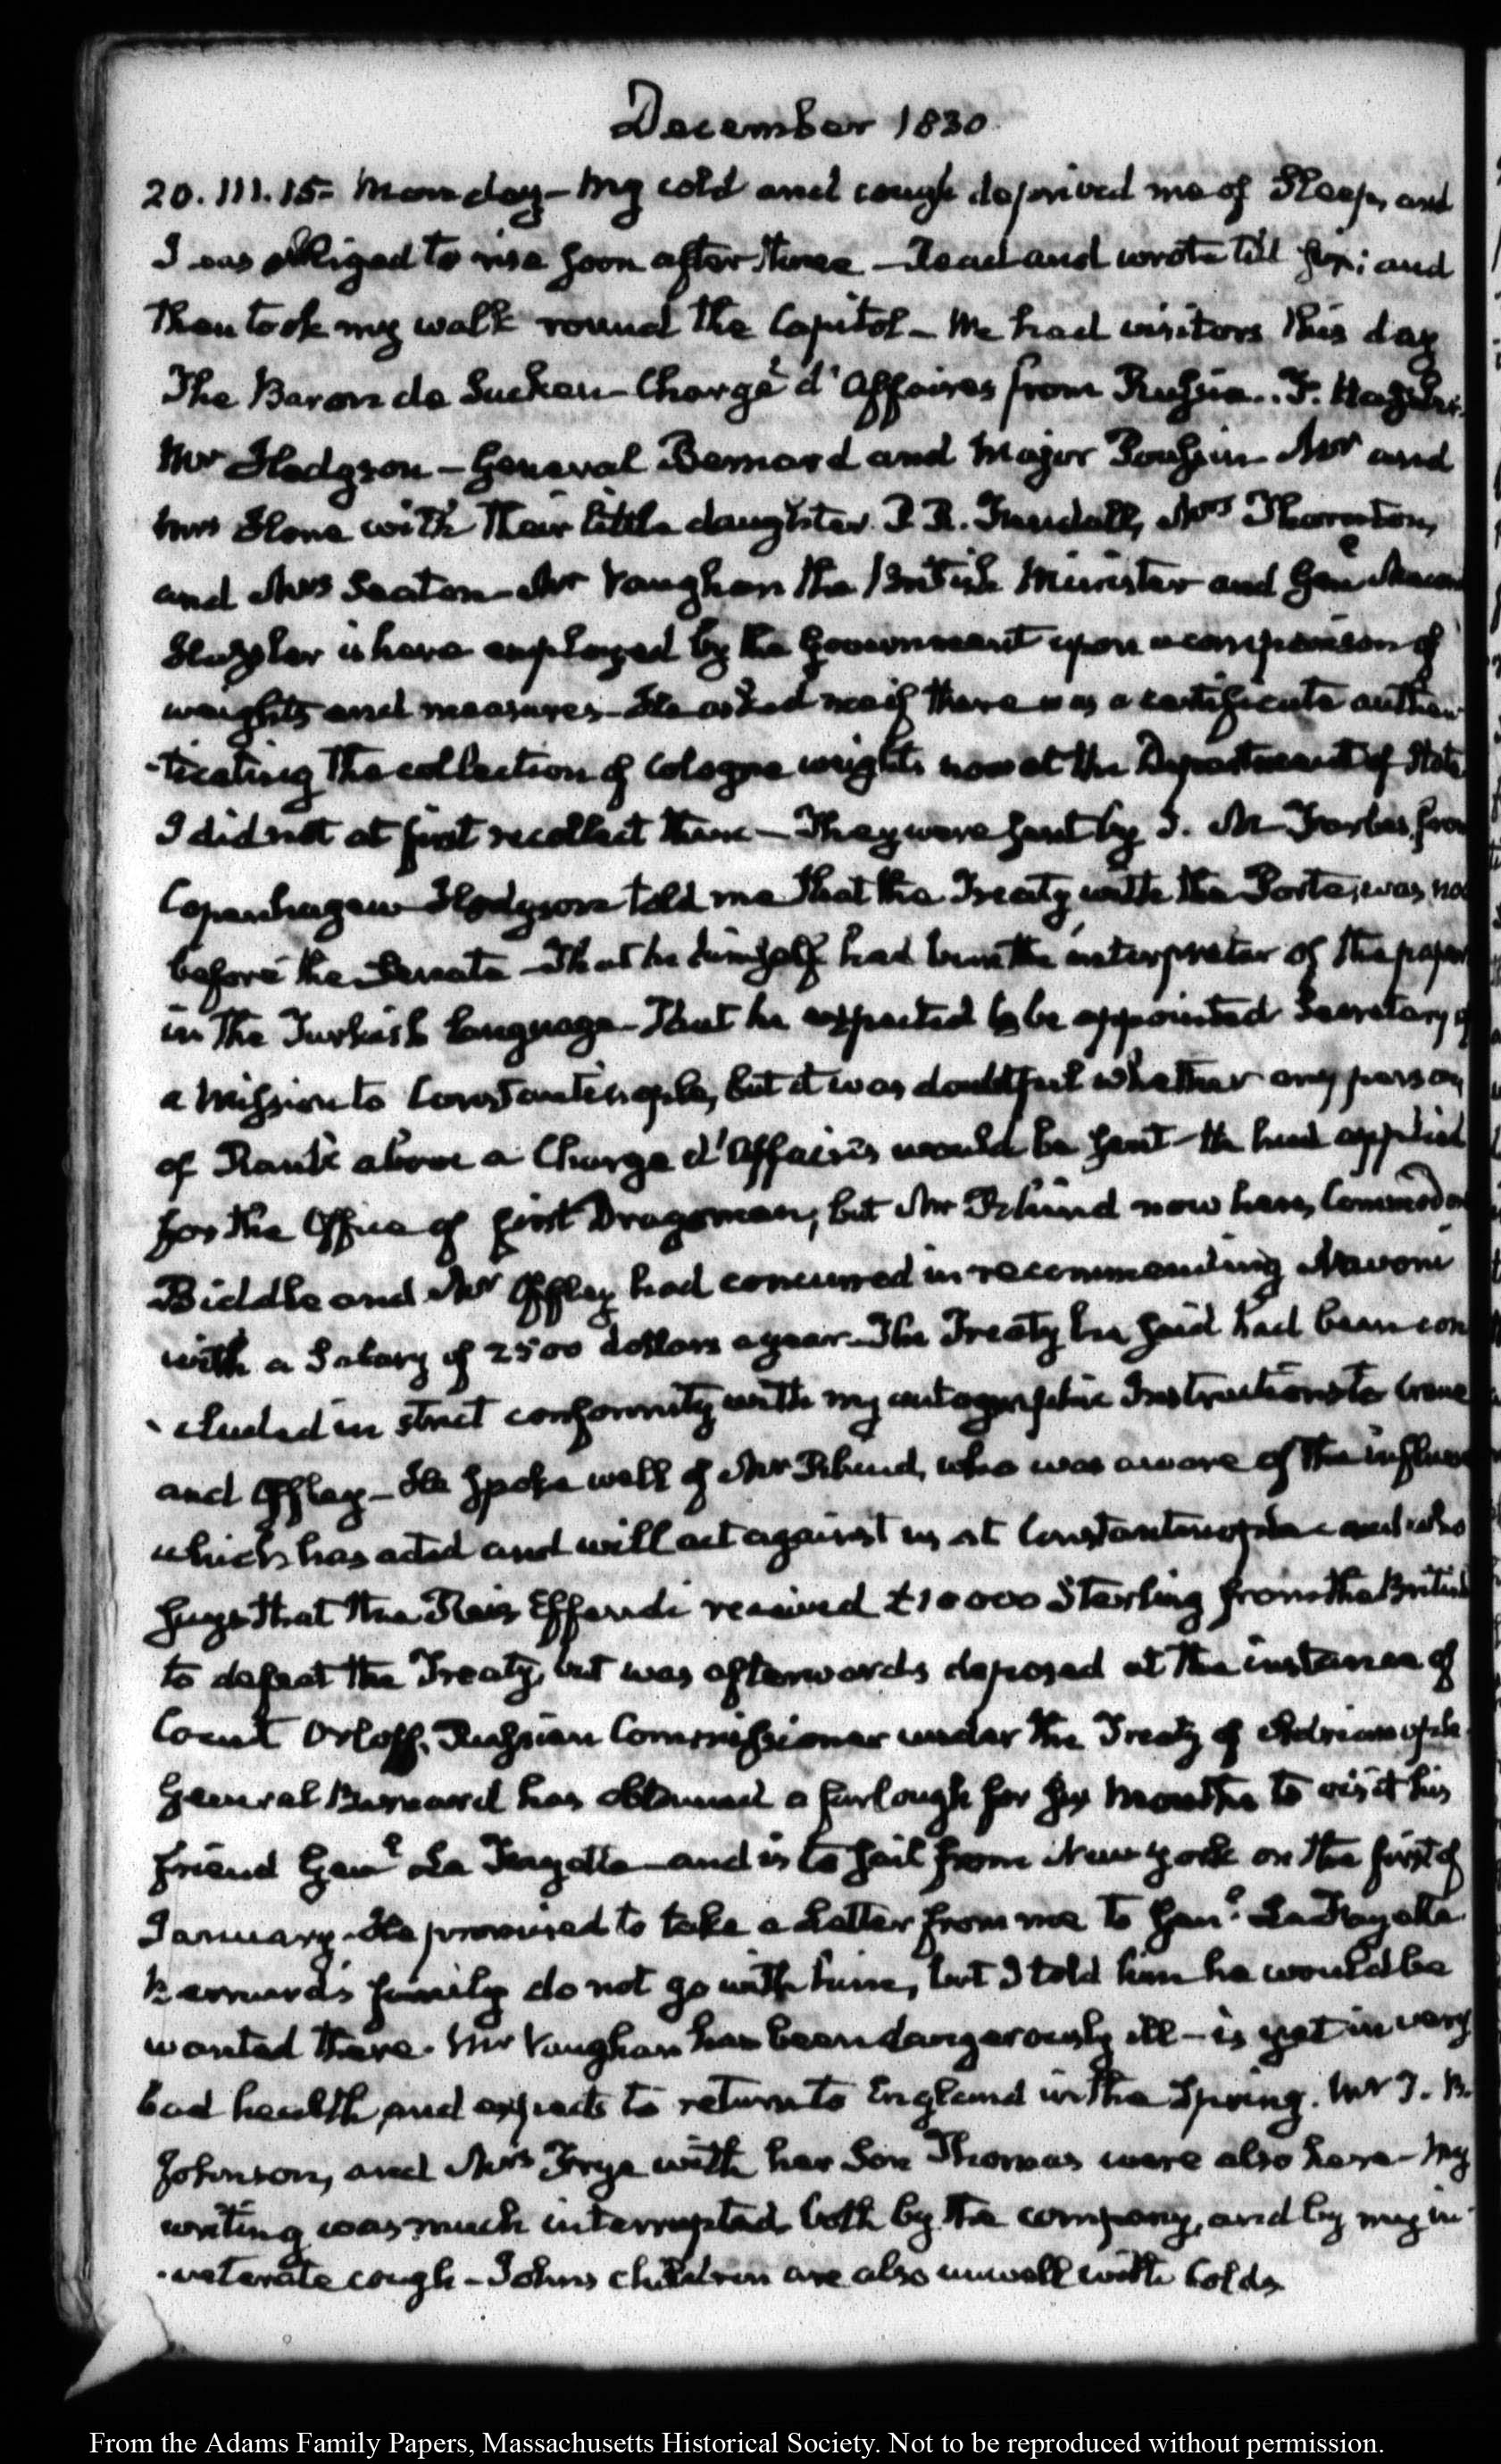 December 1830
20. III.15. Monday— My cold and cough deprived me of Sleep, and
I was obliged to rise soon after three— Read and wrote till six; and
then took my walk round the Capitol— We had visitors this day
The Baron de Sacken— Chargé d'Affaires from Russia.. F. Hassler
Mr Hodgson— General Bernard and Major Poussin Mr and
Mrs Stone with their little daughter. P. R. Fendall, Mrs Thornton,
and Mrs Seaton— Mr Vaughan the British Minister and Genl Macomb
Hassler is here employed by the Government upon a comparison of
weights and measures— He asked me if there was a certificate authen
-ticating the collection of Cologne weights now at the Department of State
I did not at first recollect them— They were sent by J. M Forbes from
Copenhagen— Hodgson told me that the Treaty with the Porte, was now
before the Senate— That he himself had been the interpreter of the papers
in the Turkish language— That he expected to be appointed Secretary of
a Mission to Constantinople, but it was doubtful whether any person
of Rank above a Charge d'Affaires would be sent— He had applied
for the Office of first Dragoman, but Mr Rhind now here, Commodore
Biddle and Mr Offley had concurred in recommending Navoni
with a Salary of 2500 dollars a year— The Treaty he said had been con
-cluded in strict conformity with my autographic Instructions to Crane
and Offley— He spoke well of Mr Rhind, who was aware of the influence
which has acted and will act against us at Constantinople— and who
says that the Reis Effendi received £10000 Sterling from the British
to defeat the Treaty, but was afterwards deposed at the instance of
Count Orloff, Russian Commissioner under the Treaty of Adrianople.
General Bernard has obtained a furlough for six Months to visit his
friend Genl La Fayette— and is to sail from New York on the first of
January. He promised to take a Letter from me to Genl La Fayette
Bernard's family do not go with him, but I told him he would be
wanted there. Mr Vaughan has been dangerously ill— is yet in very
bad health, and expects to return to England in the Spring. Mr T. B.
Johnson, and Mrs Frye with her Son Thomas were also here— My
writing was much interrupted both by the company, and by my in
-veterate cough— Johns children are also unwell with Colds
From the Adams Family Papers, Massachusetts Historical Society. Not to be reproduced without permission.